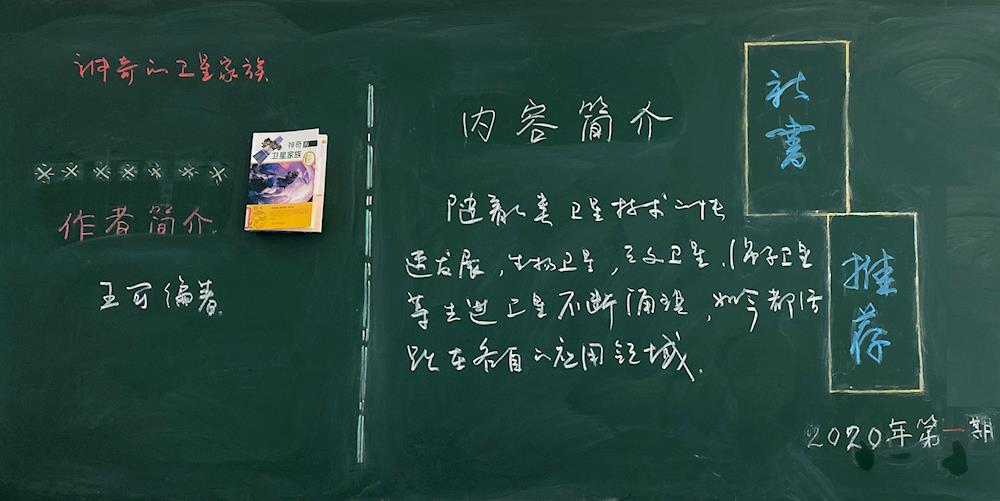 神奇的卫星家族
*******
作者简介.
王可编著.
神奇的
卫星家族
内容简介
随着人类卫星技术的快
速发展,生物卫星,天文卫星,卫星
等先进卫星不断涌现,如今都活
跃在各自的应用领域.
新書
推荐
2020年第一期